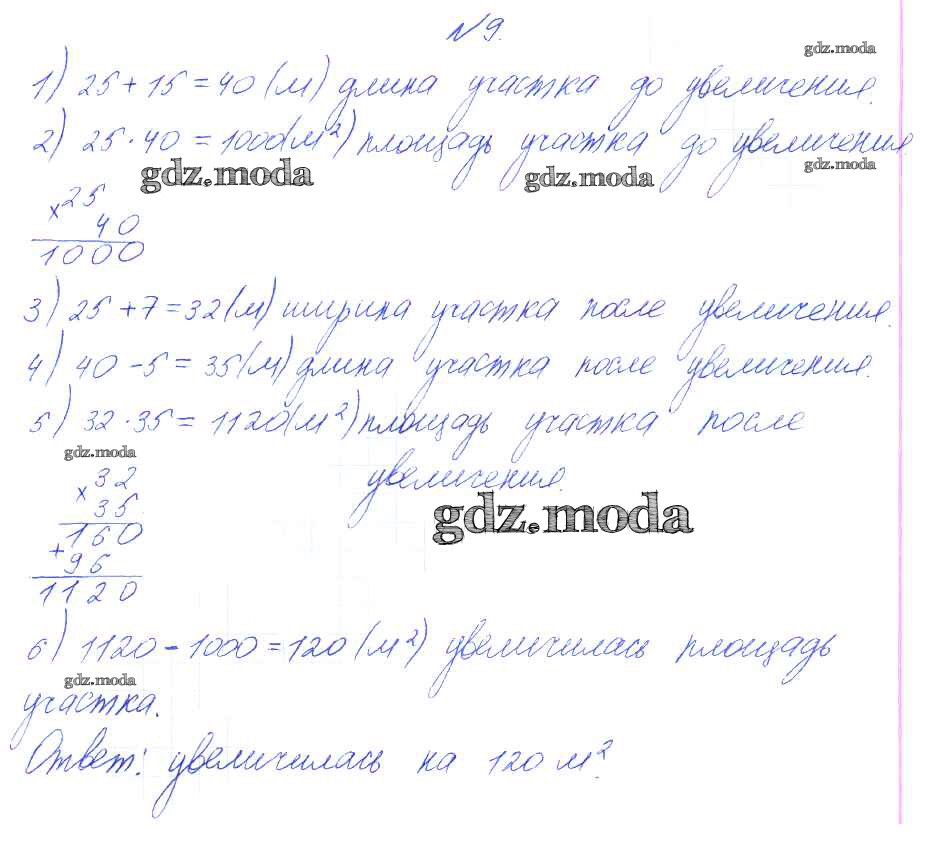 №9.
gdz.moda
1) 25 + 15 = 40 (м) длина участка до увеличения.
2) 25 · 40 = 1000(м²) площадь участка до увеличения.
gdz.moda gdz.moda gdz.moda
× 25
40
1000
3) 25 + 7 = 32 (м) ширина участка после увеличения.
4) 40 - 5 = 35 (м) длина участка после увеличения.
5) 32 · 35 = 1120(м²) площадь участка после
gdz.moda
увеличения.
× 32
35
gdz.moda
160
+ 96
1120
6) 1120 - 1000 = 120 (м²) увеличилась площадь
gdz.moda
участка.
Ответ: увеличилась на 120 м².